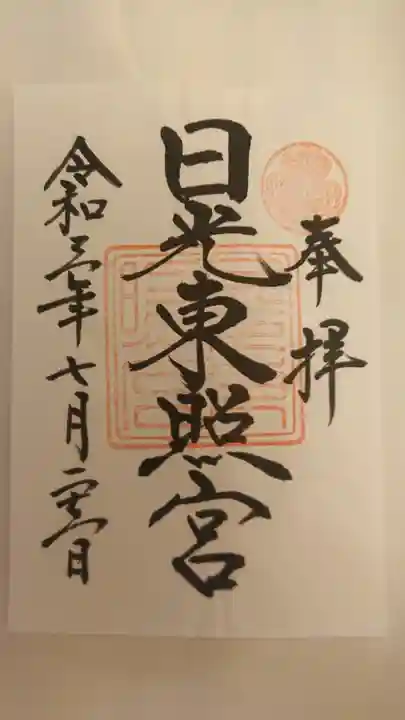 奉拝
日光東照宮
令和三年七月二十一日